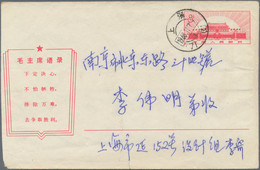 毛主席语录
下定决心，
不怕牺牲，
排除万难，
去争取胜利。
上海
南京市北京东路三十四号
李伟明 弟收
上海市延 设计组 李